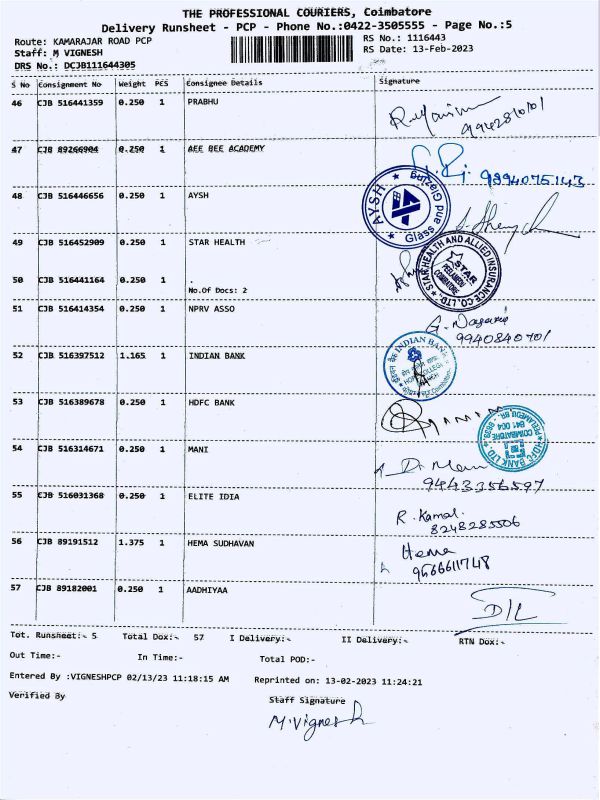 THE PROFESSIONAL COURIERS, Coimbatore
Delivery Runsheet - PCP - Phone No.:0422-3505555 - Page No.:5
Route: KAMARAJAR ROAD PCP RS No.: 1116443
Staff: M VIGNESH RS Date: 13-Feb-2023
DRS No.: DCJB111644305
S No Consignment No Weight PCS Consignee Details Signature
46 CJB 516441359 0.250 1 PRABHU
9942810101
47 CJB 89266904 0.250 1 AEE BEE ACADEMY
9994075143
48 CJB 516446656 0.250 1 AYSH
AYSH Glass and Glazing
49 CJB 516452909 0.250 1 STAR HEALTH
STAR HEALTH AND ALLIED INSURANCE CO.LTD. STAR PEELAMEDU COIMBATORE
50 CJB 516441164 0.250 1
No.Of Docs: 2
51 CJB 516414354 0.250 1 NPRV ASSO
9940840701
52 CJB 516397512 1.165 1 INDIAN BANK
INDIAN BANK
53 CJB 516389678 0.250 1 HDFC BANK
HDFC BANK LTD. PEELAMEDU BR. COIMBATORE 641 004
54 CJB 516314671 0.250 1 MANI
D. Mani
9443356597
55 CJB 516031368 0.250 1 ELITE IDIA
R. Kamal.
8248285506
56 CJB 89191512 1.375 1 HEMA SUDHAVAN
Hema
9566611748
57 CJB 89182001 0.250 1 AADHIYAA
D/L
Tot. Runsheet:- 5 Total Dox:- 57 I Delivery:- II Delivery:- RTN Dox:-
Out Time:- In Time:- Total POD:-
Entered By :VIGNESHPCP 02/13/23 11:18:15 AM Reprinted on: 13-02-2023 11:24:21
Verified By Staff Signature
M.Vignesh